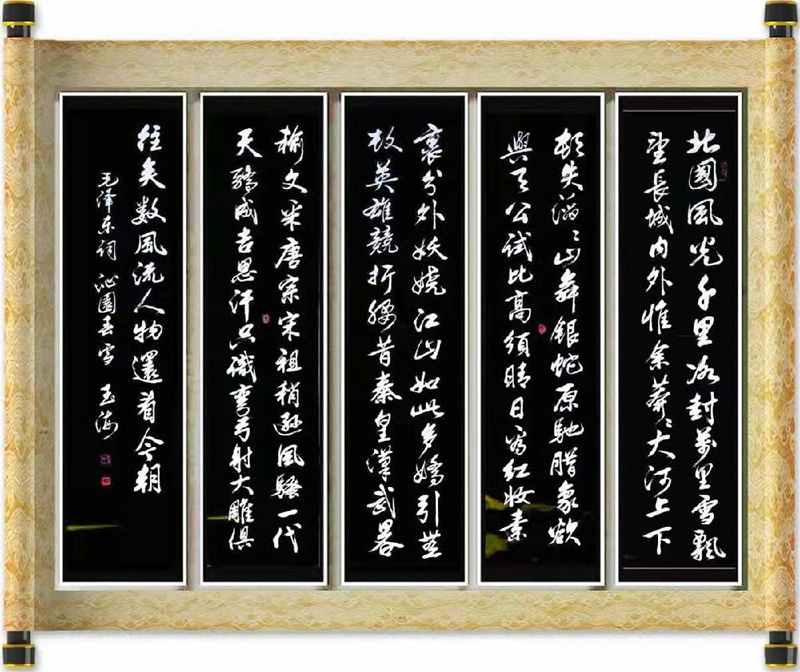 北國風光千里冰封萬里雪飄
望長城内外惟余莽々大河上下
頓失滔々山舞銀蛇原馳腊象欲
與天公試比高須晴日看紅妝素
裹分外妖嬈江山如此多嬌引無
故英雄競折腰昔秦皇漢武畧
輸文采唐宗宋祖稍遜風騷一代
天驕成吉思汗只識彎弓射大雕俱
往矣數風流人物還看今朝
毛泽东词 沁園春雪 玉海